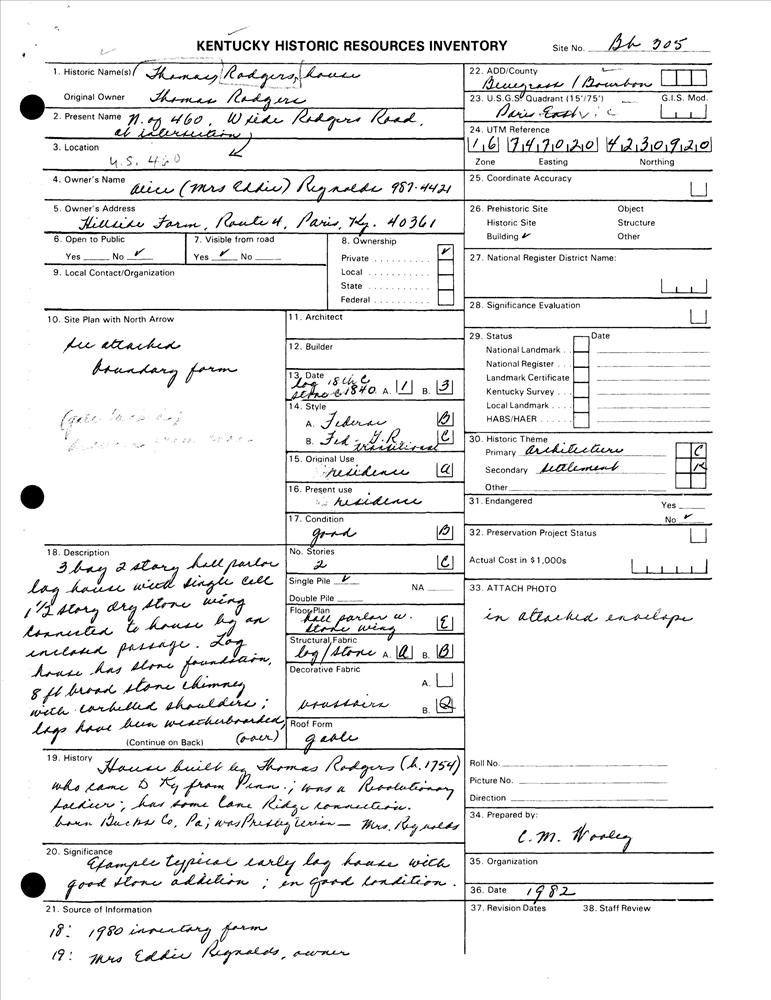 KENTUCKY HISTORIC RESOURCES INVENTORY
Site No. Bb 305
1. Historic Name(s) Thomas Rodgers house
Original Owner Thomas Rodgers
2. Present Name N. of 460, W side Rodgers Road,
at intersection
3. Location
U.S. 460
4. Owner's Name Alice (Mrs Eddie) Reynolds 987-4421
5. Owner's Address
Hillside Farm, Route 4, Paris, Ky. 40361
6. Open to Public
Yes No ✓
7. Visible from road
Yes ✓ No
8. Ownership
Private ✓
Local
State
Federal
9. Local Contact/Organization
10. Site Plan with North Arrow
see attached
boundary form
11. Architect
12. Builder
13. Date
log 18th C
stone c 1840 A. 1 B. 3
14. Style
A. Federal B
B. Fed - G.R. C
transitional
15. Original Use
residence a
16. Present use
residence
17. Condition
good B
18. Description
3 bay 2 story hall parlor
log house with single cell
1½ story dry stone wing
connected to house by an
enclosed passage. Log
house has stone foundation,
8 ft broad stone chimney
with corbelled shoulders;
logs have been weatherboarded,
(Continue on Back) (over)
No. Stories
2 C
Single Pile ✓ NA
Double Pile
Floor Plan
hall parlor w. E
stone wing
Structural Fabric
log/stone A. A B. B
Decorative Fabric
A.
voussoirs B. Q
Roof Form
gable
19. History House built by Thomas Rodgers (b. 1754)
who came to Ky from Penn.; was a Revolutionary
soldier; has some Cane Ridge connection.
born Bucks Co, Pa; was Presbyterian — Mrs. Reynolds
20. Significance
Example typical early log house with
good stone addition; in good condition.
21. Source of Information
18: 1980 inventory form
19: Mrs Eddie Reynolds, owner
22. ADD/County
Bluegrass / Bourbon
23. U.S.G.S. Quadrant (15'/75') G.I.S. Mod.
Paris East
24. UTM Reference
16 747020 4230920
Zone Easting Northing
25. Coordinate Accuracy
26. Prehistoric Site Object
Historic Site Structure
Building ✓ Other
27. National Register District Name:
28. Significance Evaluation
29. Status Date
National Landmark
National Register
Landmark Certificate
Kentucky Survey
Local Landmark
HABS/HAER
30. Historic Theme
Primary architecture C
Secondary settlement
Other
31. Endangered Yes
No ✓
32. Preservation Project Status
Actual Cost in $1,000s
33. ATTACH PHOTO
in attached envelope
Roll No.
Picture No.
Direction
34. Prepared by:
C. M. Wooley
35. Organization
36. Date 1982
37. Revision Dates 38. Staff Review